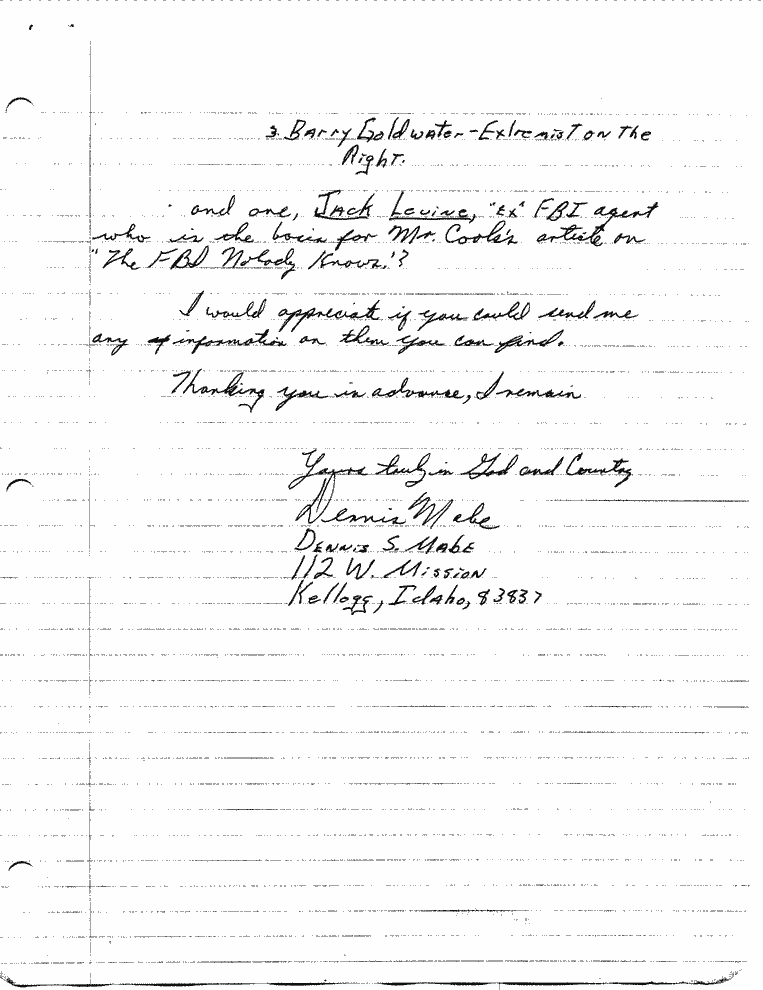 3. Barry Goldwater-Extremist on The
Right.
and one, Jack Levine, "Ex" FBI agent
who is the basis for Mr. Cook's article on
"The FBI Nobody Knows."?
I would appreciate if you could send me
any information on them you can find.
Thanking you in advance, I remain
Yours truly in God and Country
Dennis Mabe
Dennis S. Mabe
112 W. Mission
Kellogg, Idaho, 83837